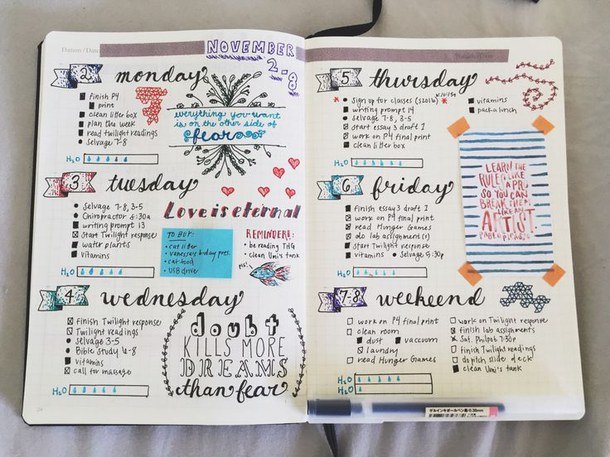 NOVEMBER
2-8
2 monday
finish P4
print
clean litter box
plan the week
read twilight readings
Selvage 7-8
H2O
everything you want
is on the other side of
fear
3 tuesday
Selvage 7-8, 3-5
Chiropractor
writing prompt 13
Start Twilight response
water plants
vitamins
H2O
Love is eternal
TO BUY:
cat litter
bday pres.
cat food
USB drive
REMINDERS:
be reading THG
clean Uni's tank
4 wednesday
finish Twilight response
Twilight readings
Selvage 3-5
Bible Study 6-8
vitamins
call for massage
H2O
doubt
KILLS MORE
DREAMS
than fear
5 thursday
Sign up for classes
writing prompt 14
Selvage 7-8, 3-5
start essay 3 draft 1
work on P4 final print
clean litter box
vitamins
pack a lunch
H2O
LEARN THE
RULES LIKE A PRO
SO YOU CAN
BREAK THEM
LIKE AN
ARTIST.
PABLO PICASSO
6 friday
finish essay 3 draft 1
work on P4 final print
read Hunger Games
do lab assignment (1)
Start Twilight response
vitamins
Selvage 5:30p
H2O
7-8 weekend
work on P4 final print
clean room
dust
vacuum
laundry
read Hunger Games
work on Twilight response
finish lab assignments
Sat. 7:30p
finish Twilight readings
polish slide deck
clean Uni's tank
H2O
H2O